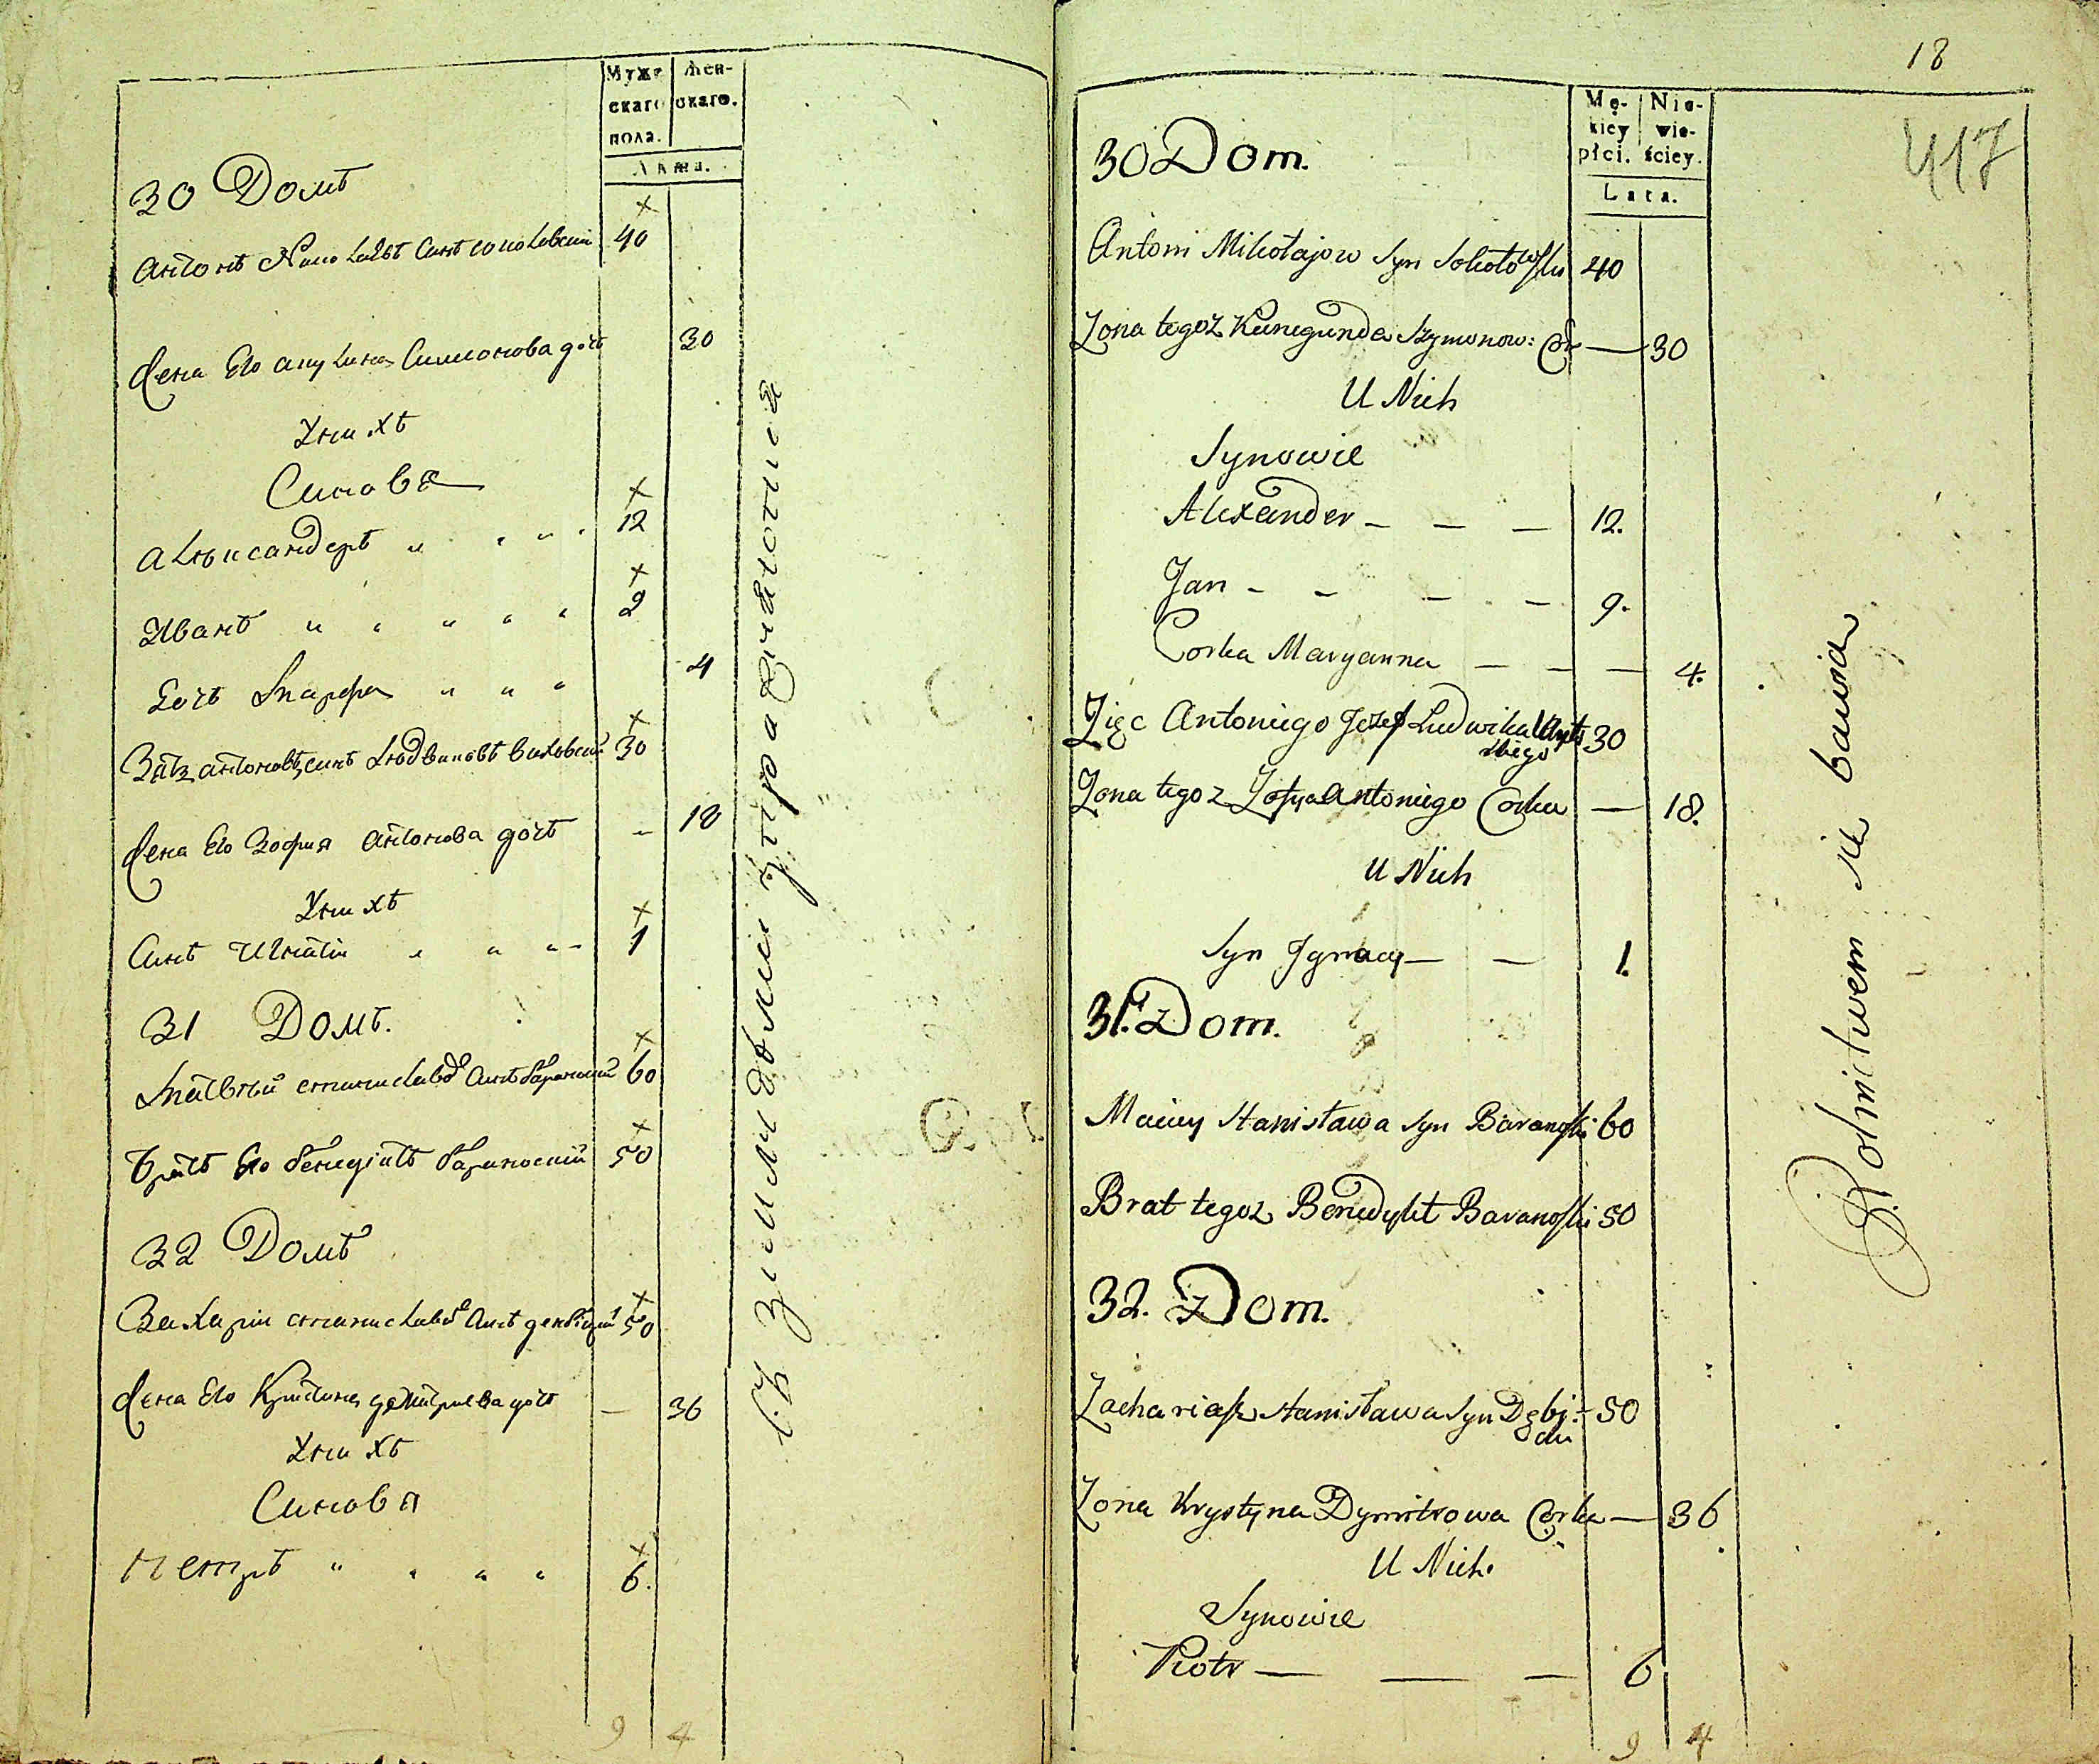 Муже
скаго
пола.
Жен-
скаго.
Лѣта.
30 Домъ
Антонъ Николаевъ Синъ Соколовский 40
Жена Его Анулина Симонова дочъ 30
У нихъ
Синовя
Алѣксандеръ 12
Иванъ 9
Дочъ Марфа 4
Зять Антоновъ, синъ Людвиковъ 30
Жена Его Зофия Антонова дочъ – 18
У нихъ
Синъ Игнатiи 1
31 Домъ.
Матвѣй Станиславовъ Синъ Барановский 60
Братъ Его Бенедiктъ Барановский 50
32 Домъ
Захарiи Станиславовъ Синъ 50
Жена Его Кристина Демитриева дочъ – 36
У нихъ
Синовя
Петръ 6.
9 4
18
417
Mę-
kiey
płci.
Nie-
wie-
ściey.
Lata.
30 Dom.
Antoni Mikołajow Syn Sokołowski 40
Zona tegoż Kunegunda Szymonow: Cor — 30
U Nich
Synowie
Alexander — — — 12.
Jan — — — — 9.
Corka Maryanna — — — 4.
Zięc Antoniego Jozef Ludwika 30
skiego
Zona tegoz Zofya Antoniego Corka — 18.
U Nich
Syn Jgnacy — — 1.
31. Dom.
Maciey Stanisława Syn Baranoski 60
Brat tegoz Benedykt Baranoski 50
32. Dom.
Zachariasz Stanisława Syn Dębi- 50
cki
Zona Krystyna Dymitrowa Corka — 36
U Nich.
Synowie
Piotr — — — 6
9 4
Rolnictwem się bawią